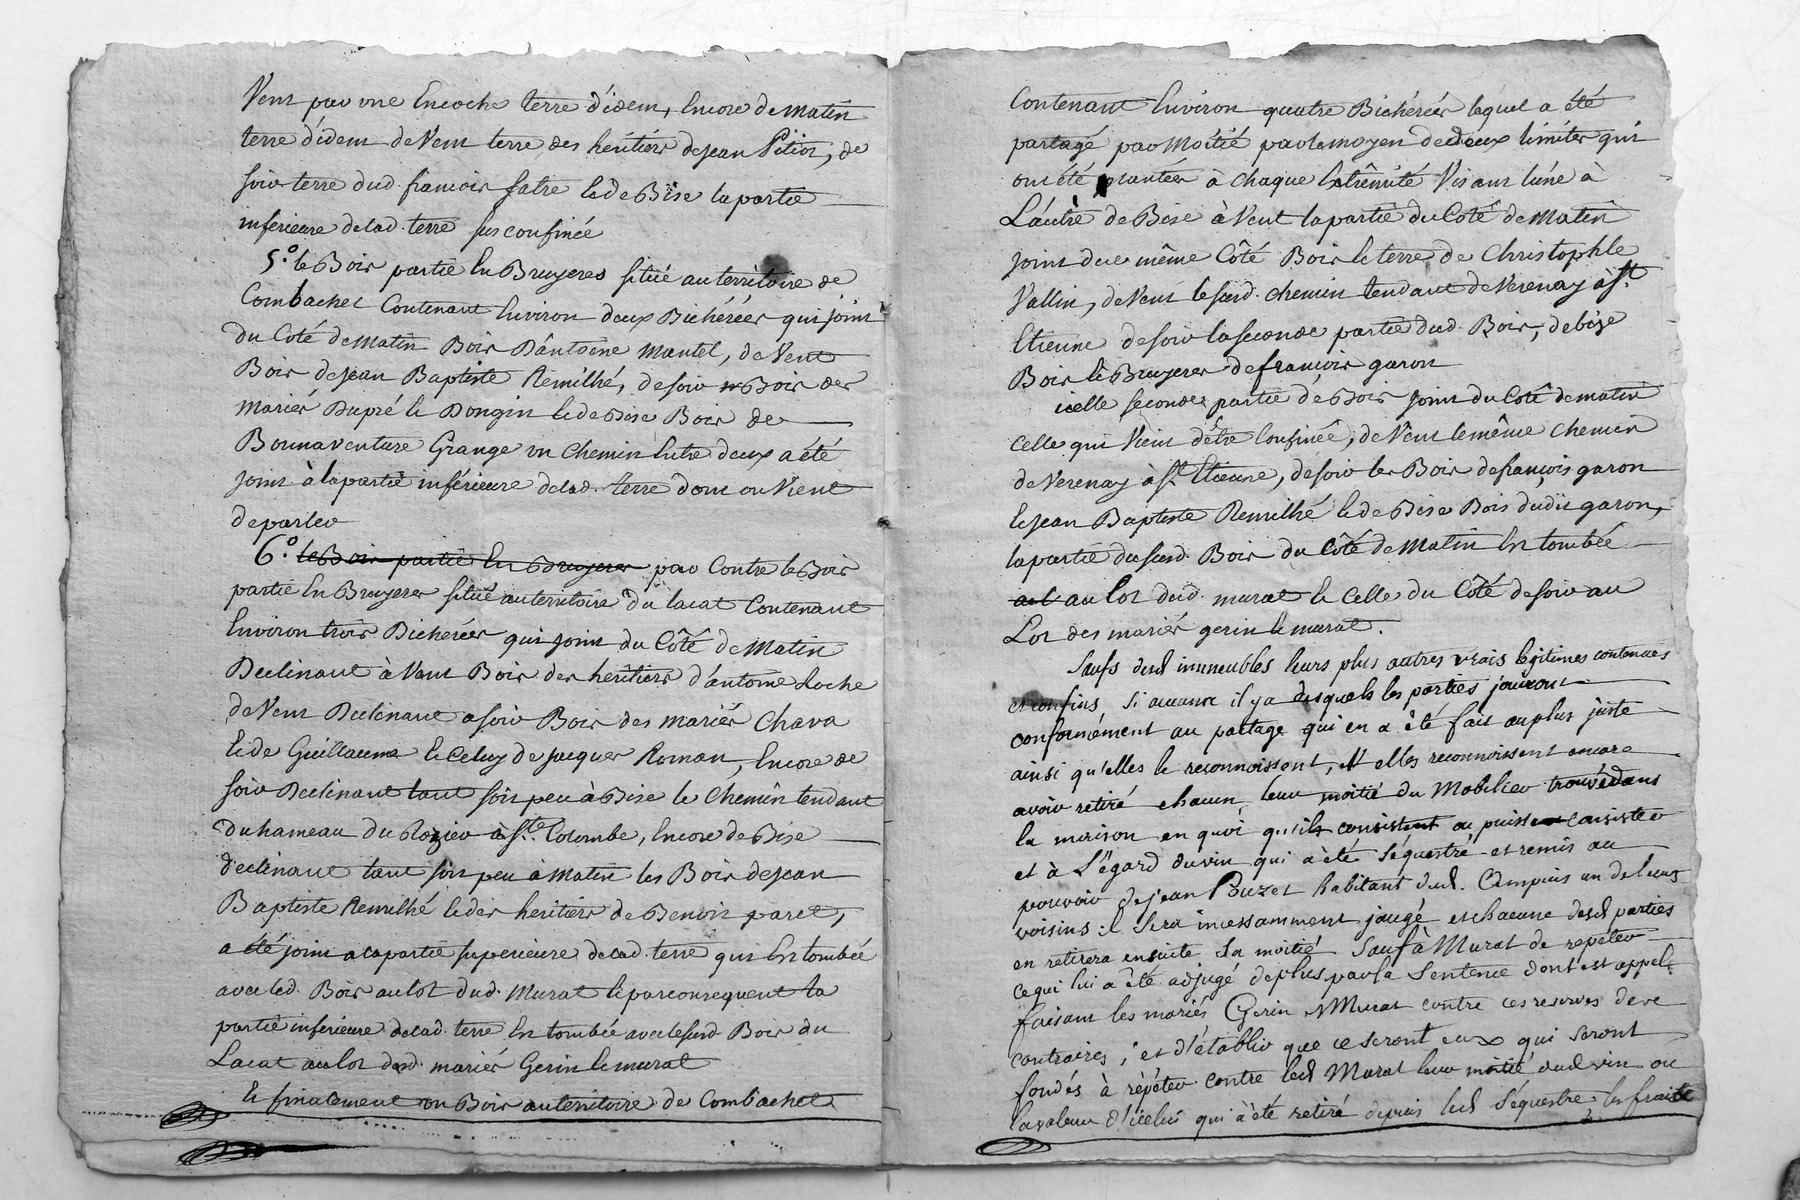 Vent par une Encoche terre d'idem, Encore de Matin
terre d'idem de Vent terre des héritiers de Jean Pitiot, de
soir terre dud. francois fatre & de Bise la partie
inferieure de lad. terre sus confinée
5.° le Bois partie En Bruyeres situé au territoire de
Combachet Contenant Environ deux Bichérées qui joint
du Coté de Matin Bois D'antoine Mantel, de Vent
Bois de Jean Baptiste Remilhé, de soir Bois des
Mariés Dupré & Dongin & de Bise Bois de
Bonnaventure Grange un Chemin Entre deux a été
joint à la partie inférieure de lad. terre dont on Vient
de parler
6.° le Bois partie En Bruyeres par Contre le Bois
partie En Bruyeres situé au territoire du lacat Contenant
Environ trois Bicherées qui joint du Côté de Matin
Declinant à Vent Bois des heritiers d'antoine Loche
de Vent Declinant a soir Bois des mariés Chava
& de Guillaume & Celuy de jacques Roman, Encore de
soir Declinant tant soit peu à Bise le Chemin tendant
du hameau du Rozier à Ste. Colombe, Encore de Bise
declinant tant soit peu à Matin les Bois de Jean
Baptiste Remilhé & des heritiers de Benoit garet,
a été joint a la partie superieure de lad. terre qui Est tombée
avec led. Bois au lot dud. Murat & par consequent la
partie inferieure de lad. terre Est tombée avec le susd Bois du
Lacat au lot desd. mariés Gerin & murat
Et finalement un Bois au territoire de Combachet
Contenant Environ quatre Bichérées lequel a été
partagé par Moitié par le moyen de deux limites qui
ont été plantées à Chaque Extrêmité Visant l'une à
L'autre de Bise à Vent la partie du Coté de Matin
joint du même Côté Bois & terre de Christophle
Vallin, de Vent le susd. chemin tendant de Verenay à St.
Etienne de soir la seconde partie dud. Bois, de bise
Bois & Bruyeres de francois garon
icelle seconde partie de Bois joint du Coté de matin
Celle qui Vient d'être Confinée, de Vent le même Chemin
de Verenay à St. Etienne, de soir les Bois de françois garon
& Jean Baptiste Remilhé & de Bise Bois dudit garon,
la partie du susd. Bois du Côté de Matin Est tombée
au lot dud. murat & Celle du Côté de soir au
Lot des mariés gerin & murat.
Saufs desd immeubles leurs plus autres vrais légitimes contenues
et confins, si aucuns il y a desquels les parties jouiront
conformément au partage qui en a été fait au plus juste
ainsi qu'elles le reconnoissent, & elles reconnoissent encore
avoir retiré chacun leur moitié du Mobilier trouvé dans
la maison en quoi qu'il consistent ou puissent consister
et à L'égard du vin qui a été séquestré et remis au
pouvoir de jean Pouzet habitant dud. Ampuis un de leurs
voisins il sera incessamment jaugé et chacune desd parties
en retirera ensuite sa moitié sauf à Murat de repéter
ce qui lui a été adjugé de plus par la Sentence dont est appel
faisant les mariés Gerin & Murat contre ces reserves de se
contraires, et d'établir que ce seront eux qui seront
fondés à répéter contre led Murat leur moitié dud vin ou
la valeur d'icelui qui a été retiré depuis led Séquestre, les frais